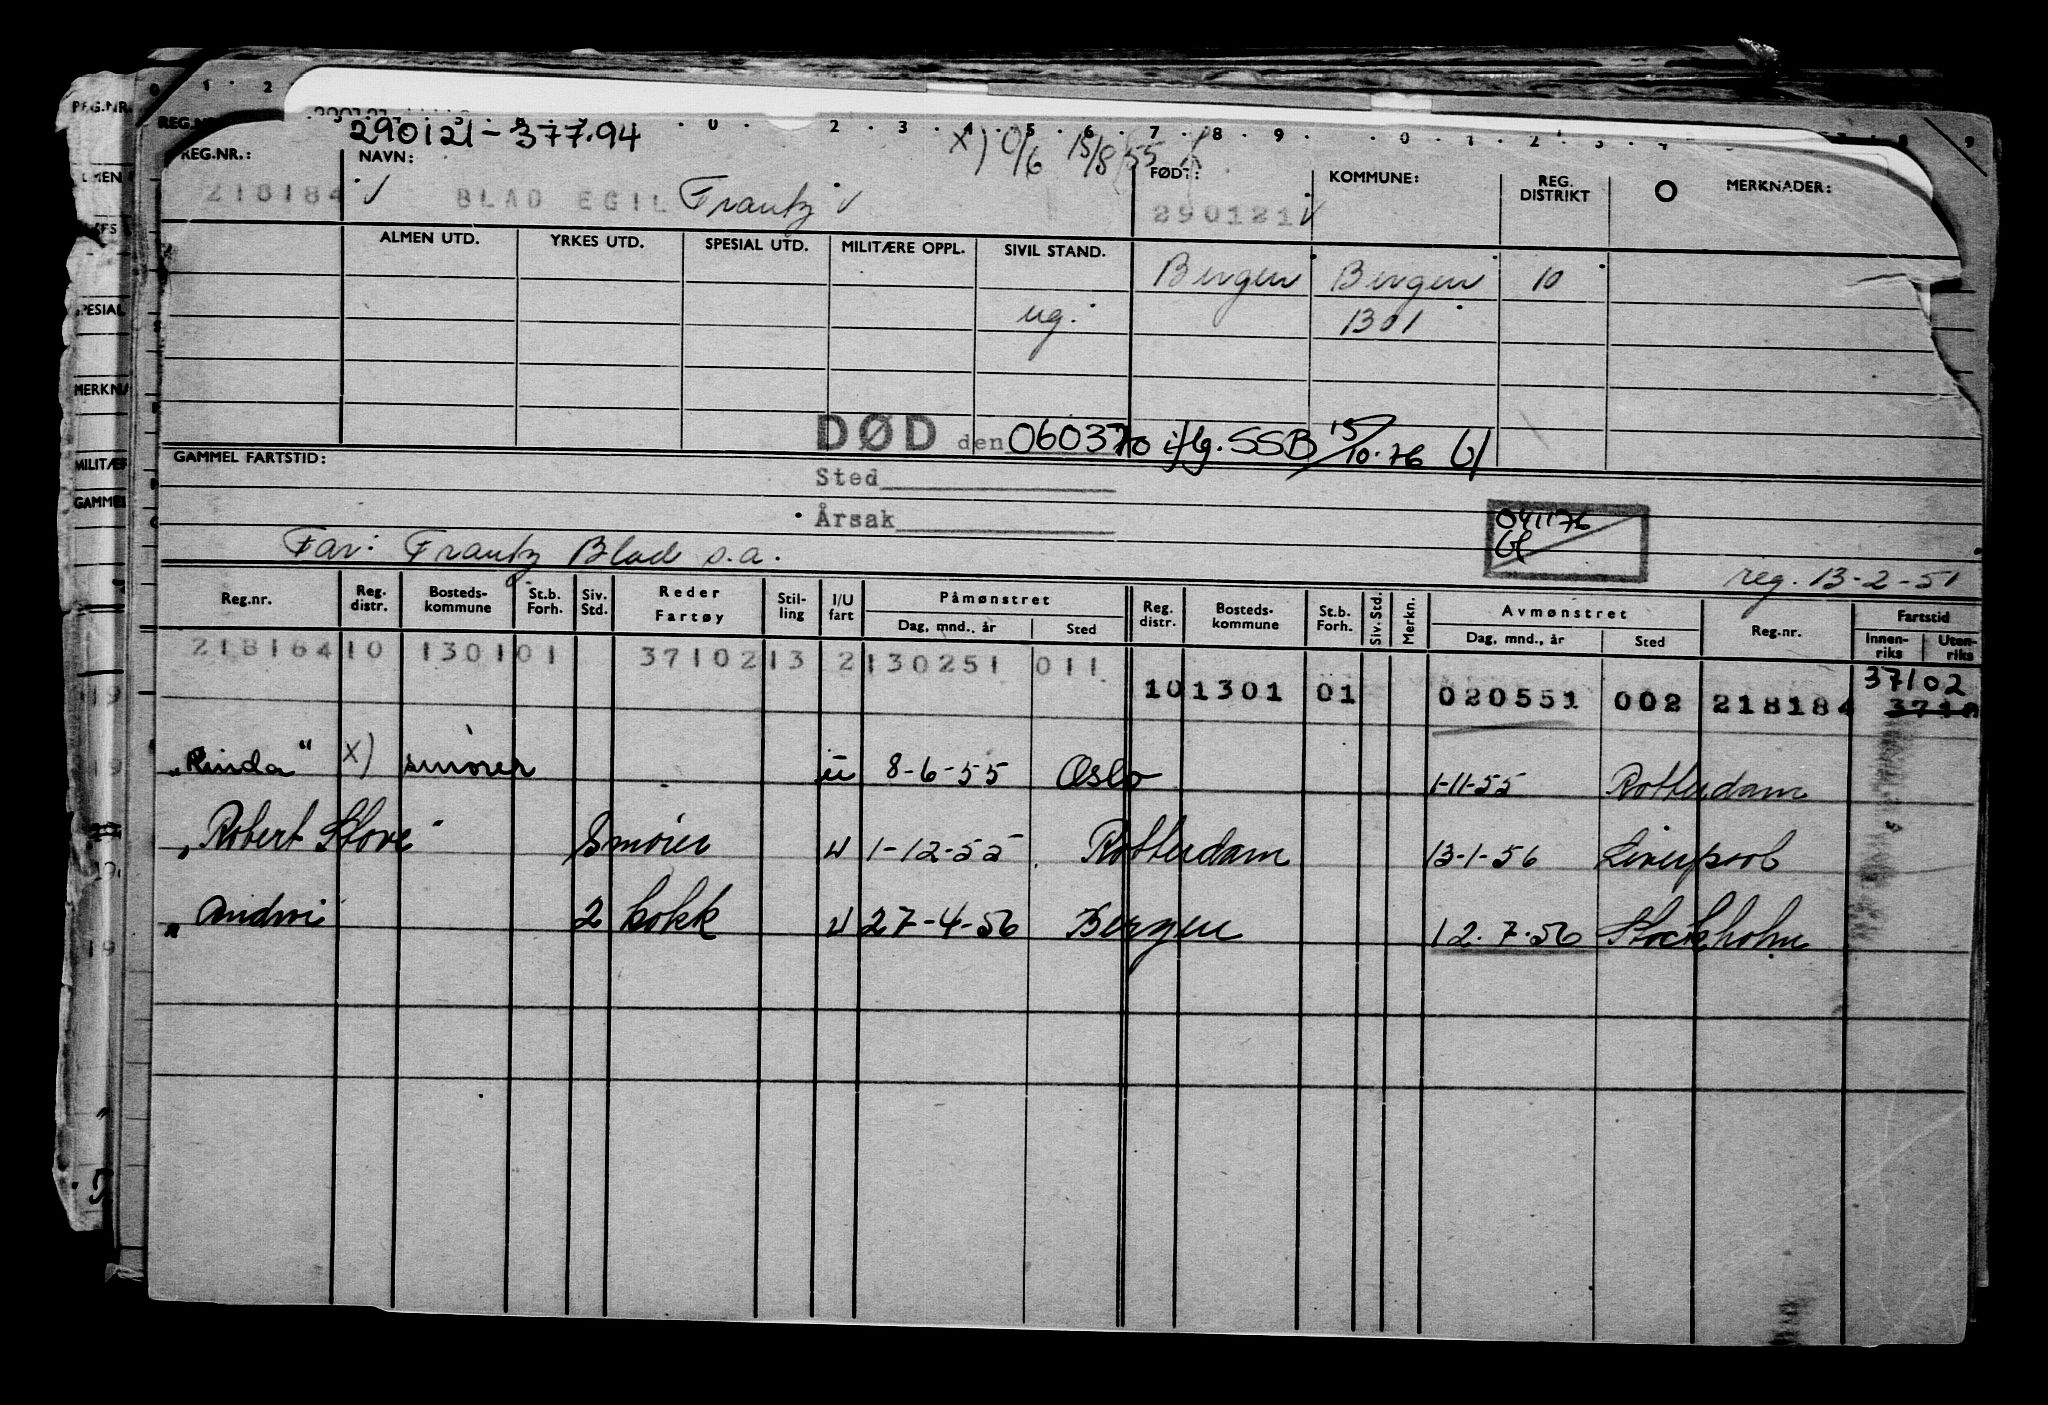 290121-377.94
x) 0/6 15/8 55
REG.NR.: NAVN: FØDT: KOMMUNE: REG. DISTRIKT MERKNADER:
218184 BLAD EGIL Frantz 290121
ALMEN UTD. YRKES UTD. SPESIAL UTD. MILITÆRE OPPL. SIVIL STAND.
Bergen Bergen 10
ug. 1301
DØD den 060370 iflg. SSB 15/10-76
GAMMEL FARTSTID:
Sted
Årsak
041176
Far: Frantz Blad s.a.
reg. 13-2-51
Reg.nr. Reg. distr. Bosteds-kommune St.b. Forh. Siv. Std. Reder Fartøy Stil-ling I/U fart Påmønstret Dag, mnd., år Sted Reg. distr. Bosteds-kommune St.b. Forh. Siv. Std. Merkn. Avmønstret Dag, mnd., år Sted Reg.nr. Fartstid Innen-riks Uten-riks
218184 10 1301 01 37102 13 2 130251 011
37102
10 1301 01 020551 002 218184 3710
"Rinda" x) smører u 8-6-55 Oslo 1-11-55 Rotterdam
"Robert Stove" Smører u 1-12-55 Rotterdam 13-1-56 Liverpool
" 2 kokk u 27-4-56 Bergen 12.7.56 Stockholm